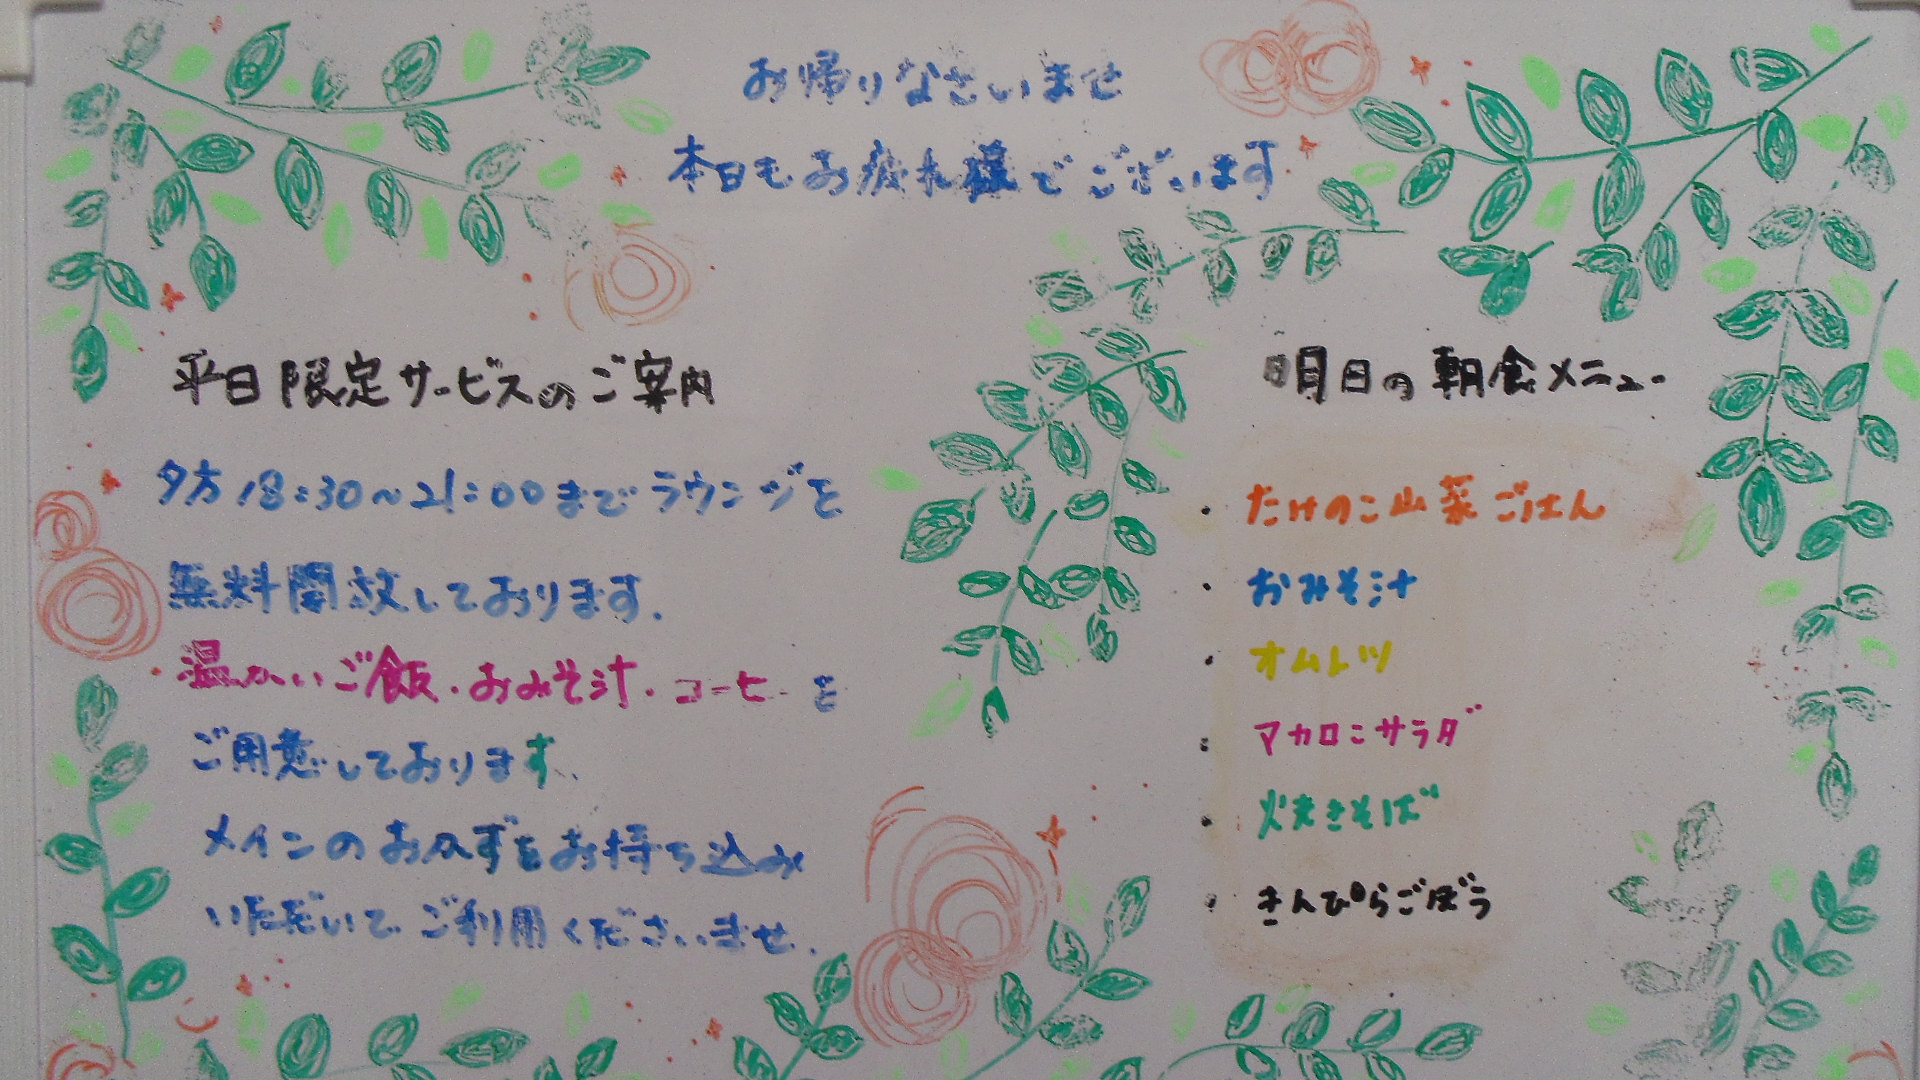 お帰りなさいませ
本日もお疲れ様でございます
平日限定サービスのご案内
夕方18:30～21:00までラウンジを
無料開放しております.
温かいご飯・おみそ汁・コーヒーを
ご用意しております.
メインのおかずをお持ち込み
いただいてご利用くださいませ.
明日の朝食メニュー
・たけのこ山菜ごはん
・おみそ汁
・オムレツ
・マカロニサラダ
・焼きそば
・きんぴらごぼう